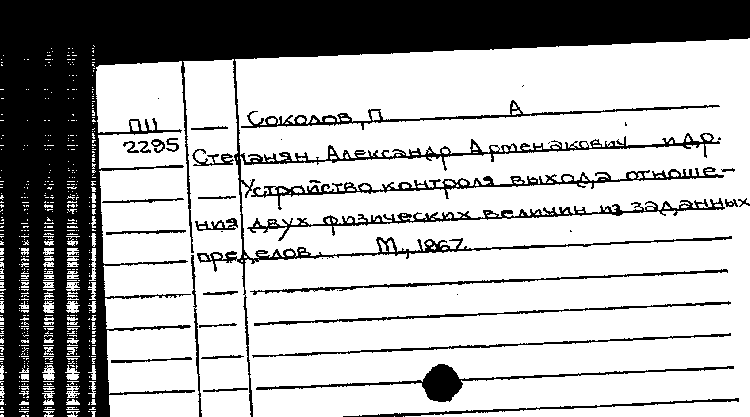 ПШ Соколов, П А
2295 Степанян, Александр Артенакович и др.
Устройство контроля выхода отноше-
ния двух физических величин из заданных
пределов. М., 1867.